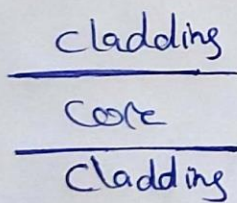 cladding
Core
Cladding